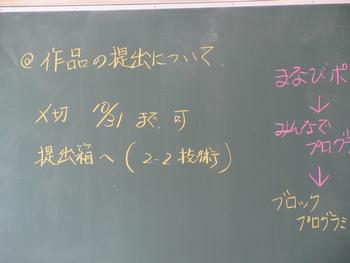 @ 作品の提出について.
〆切 10/31 まで 可
提出箱へ (2-2 技術)
まなびポ
↓
みんなで
プログラ
↓
ブロック
プログラミ